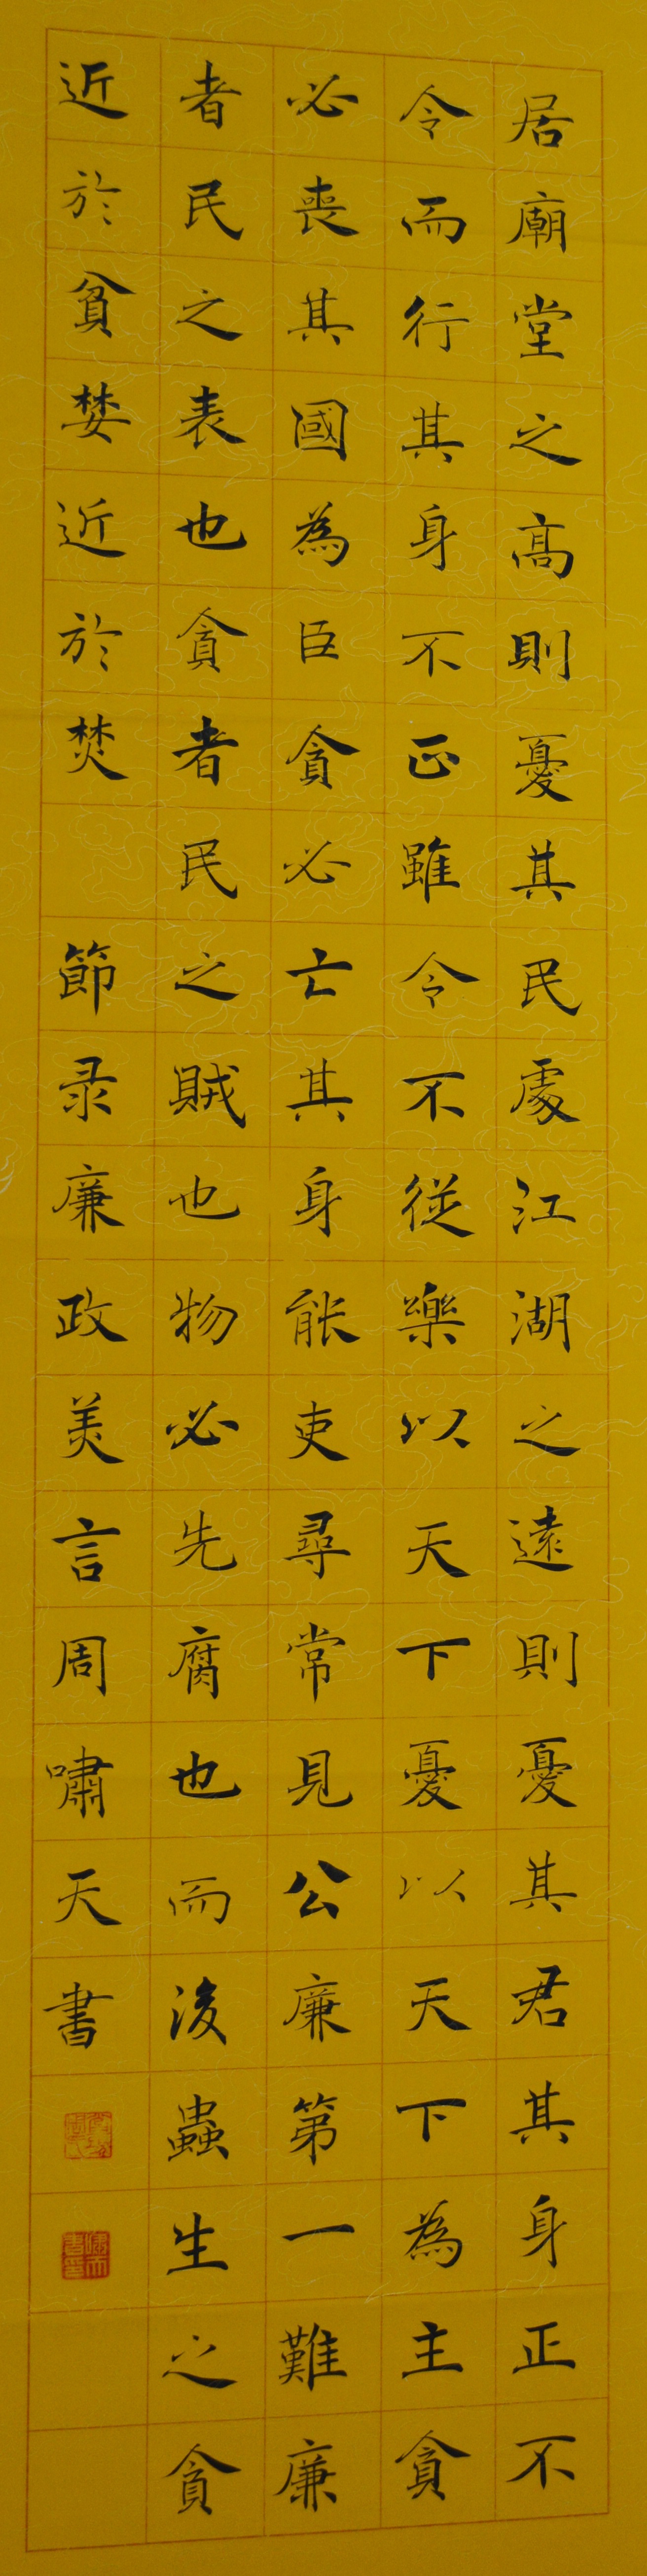 居廟堂之高則憂其民處江湖之遠則憂其君其身正不
令而行其身不正雖令不從樂以天下憂以天下為主貪
必喪其國為臣貪必亡其身能吏尋常見公廉第一難廉
者民之表也貪者民之賊也物必先腐也而後蟲生之貪
近於貧婪近於焚 節录廉政美言周嘯天書